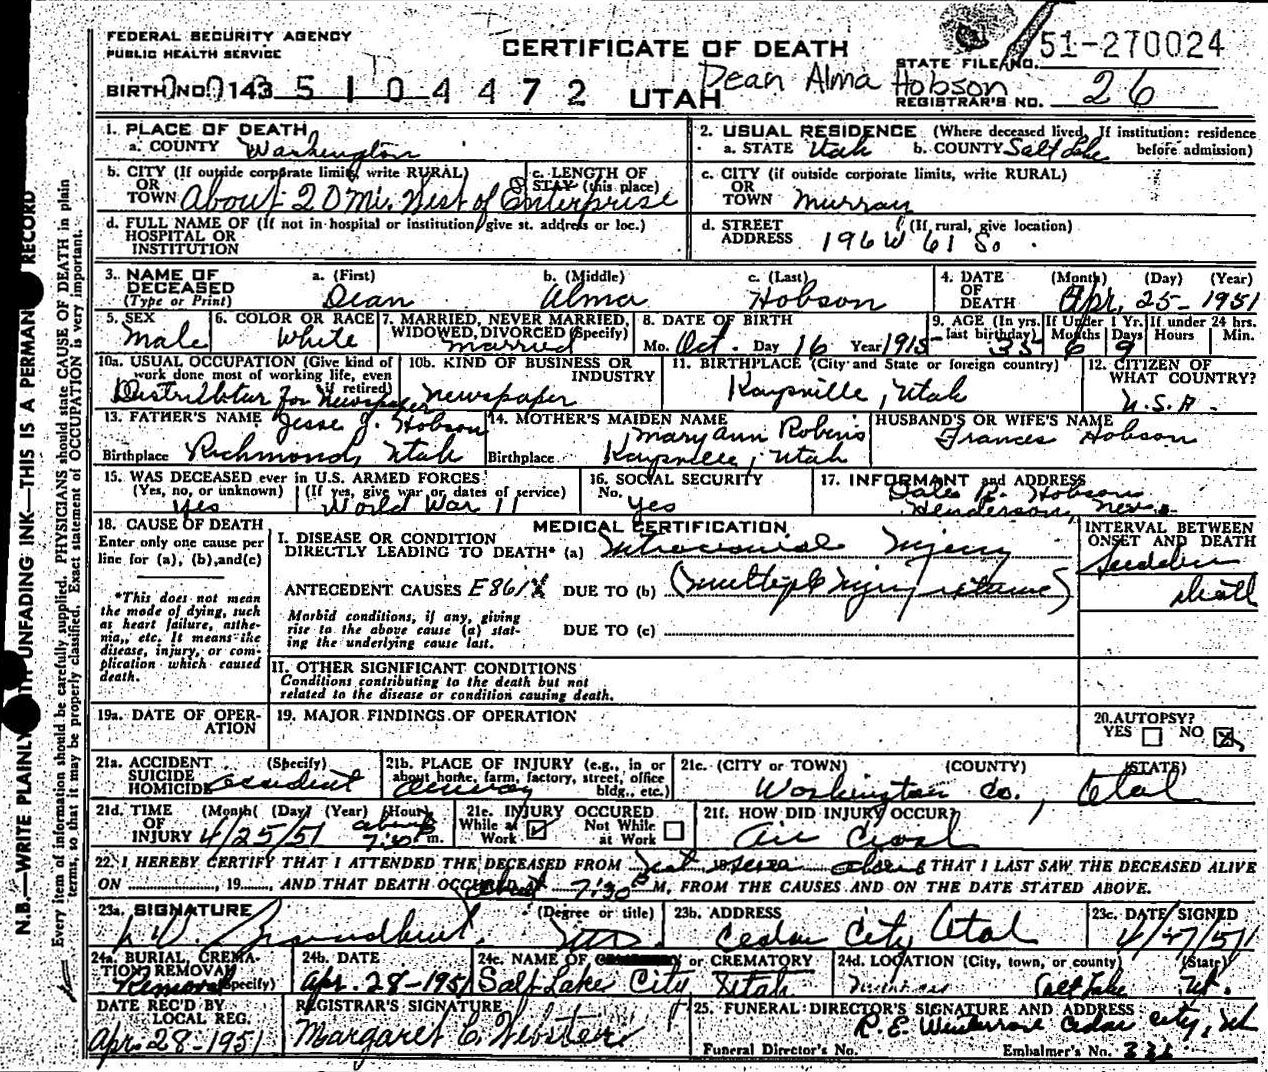 FEDERAL SECURITY AGENCY
PUBLIC HEALTH SERVICE
CERTIFICATE OF DEATH
STATE FILE NO. 51-270024
BIRTH NO. 143 5 1 0 4 4 7 2
UTAH
Dean Alma Hobson
REGISTRAR'S NO. 26
1. PLACE OF DEATH
a. COUNTY Washington
2. USUAL RESIDENCE (Where deceased lived. If institution: residence before admission)
a. STATE Utah b. COUNTY Salt Lake
b. CITY (If outside corporate limits, write RURAL) OR TOWN About 20 Mi. West of Enterprise
c. LENGTH OF STAY (this place)
c. CITY (if outside corporate limits, write RURAL) OR TOWN Murray
d. FULL NAME OF (If not in hospital or institution give st. address or loc.) HOSPITAL OR INSTITUTION
d. STREET ADDRESS (If rural, give location) 196 W 61 So.
3. NAME OF DECEASED (Type or Print)
a. (First) Dean b. (Middle) Alma c. (Last) Hobson
4. DATE OF DEATH (Month) (Day) (Year) Apr. 25-1951
5. SEX Male
6. COLOR OR RACE White
7. MARRIED, NEVER MARRIED, WIDOWED, DIVORCED (Specify) Married
8. DATE OF BIRTH Mo. Oct. Day 16 Year 1915
9. AGE (In yrs. last birthday) 35 If Under 1 Yr. Months 6 Days 9 If under 24 hrs. Hours Min.
10a. USUAL OCCUPATION (Give kind of work done most of working life, even if retired) Distributor for Newspaper
10b. KIND OF BUSINESS OR INDUSTRY Newspaper
11. BIRTHPLACE (City and State or foreign country) Kaysville, Utah
12. CITIZEN OF WHAT COUNTRY? U.S.A.
13. FATHER'S NAME Jesse J. Hobson
Birthplace Richmond, Utah
14. MOTHER'S MAIDEN NAME Mary Ann Robins
Birthplace Kaysville, Utah
HUSBAND'S OR WIFE'S NAME Frances Hobson
15. WAS DECEASED ever in U.S. ARMED FORCES?
(Yes, no, or unknown) Yes (If yes, give war or dates of service) World War II
16. SOCIAL SECURITY No. Yes
17. INFORMANT and ADDRESS Dale R. Hobson
Henderson, Nev.
18. CAUSE OF DEATH
Enter only one cause per line for (a), (b), and (c)
*This does not mean the mode of dying, such as heart failure, asthenia, etc. It means the disease, injury, or complication which caused death.
MEDICAL CERTIFICATION
I. DISEASE OR CONDITION DIRECTLY LEADING TO DEATH* (a) Intracranial Injury
ANTECEDENT CAUSES E861X DUE TO (b) (multiple injury
Morbid conditions, if any, giving rise to the above cause (a) stating the underlying cause last.
DUE TO (c)
INTERVAL BETWEEN ONSET AND DEATH
Sudden
death
II. OTHER SIGNIFICANT CONDITIONS
Conditions contributing to the death but not related to the disease or condition causing death.
19a. DATE OF OPERATION
19. MAJOR FINDINGS OF OPERATION
20. AUTOPSY? YES NO X
21a. ACCIDENT SUICIDE HOMICIDE (Specify) accident
21b. PLACE OF INJURY (e.g., in or about home, farm, factory, street, office bldg., etc.)
21c. (CITY OR TOWN) (COUNTY) (STATE)
Washington Co., Utah
21d. TIME OF INJURY (Month) (Day) (Year) (Hour) 4/25/51 about 7:30 m.
21e. INJURY OCCURED While at Work Not While at Work
21f. HOW DID INJURY OCCUR? Air Crash
22. I HEREBY CERTIFY THAT I ATTENDED THE DECEASED FROM THAT I LAST SAW THE DECEASED ALIVE
ON , 19 , AND THAT DEATH OCCURED about 7:30 P M, FROM THE CAUSES AND ON THE DATE STATED ABOVE.
23a. SIGNATURE (Degree or title)
23b. ADDRESS Cedar City Utah
23c. DATE SIGNED 4/27/51
24a. BURIAL, CREMATION REMOVAL (Specify) Removal
24b. DATE Apr. 28-1951
24c. NAME OF or CREMATORY Salt Lake City Utah
24d. LOCATION (City, town, or county) (State) Salt Lake Ut.
DATE REC'D BY LOCAL REG. Apr. 28-1951
REGISTRAR'S SIGNATURE Margaret C. Webster
25. FUNERAL DIRECTOR'S SIGNATURE AND ADDRESS
Cedar City, Ut
Funeral Director's No. Embalmer's No.
N.B.—WRITE PLAINLY UNFADING INK—THIS IS A PERMAN RECORD
Every item of information should be carefully supplied. PHYSICIANS should state CAUSE OF DEATH in plain
terms, so that it may be properly classified. Exact statement of OCCUPATION is very important.